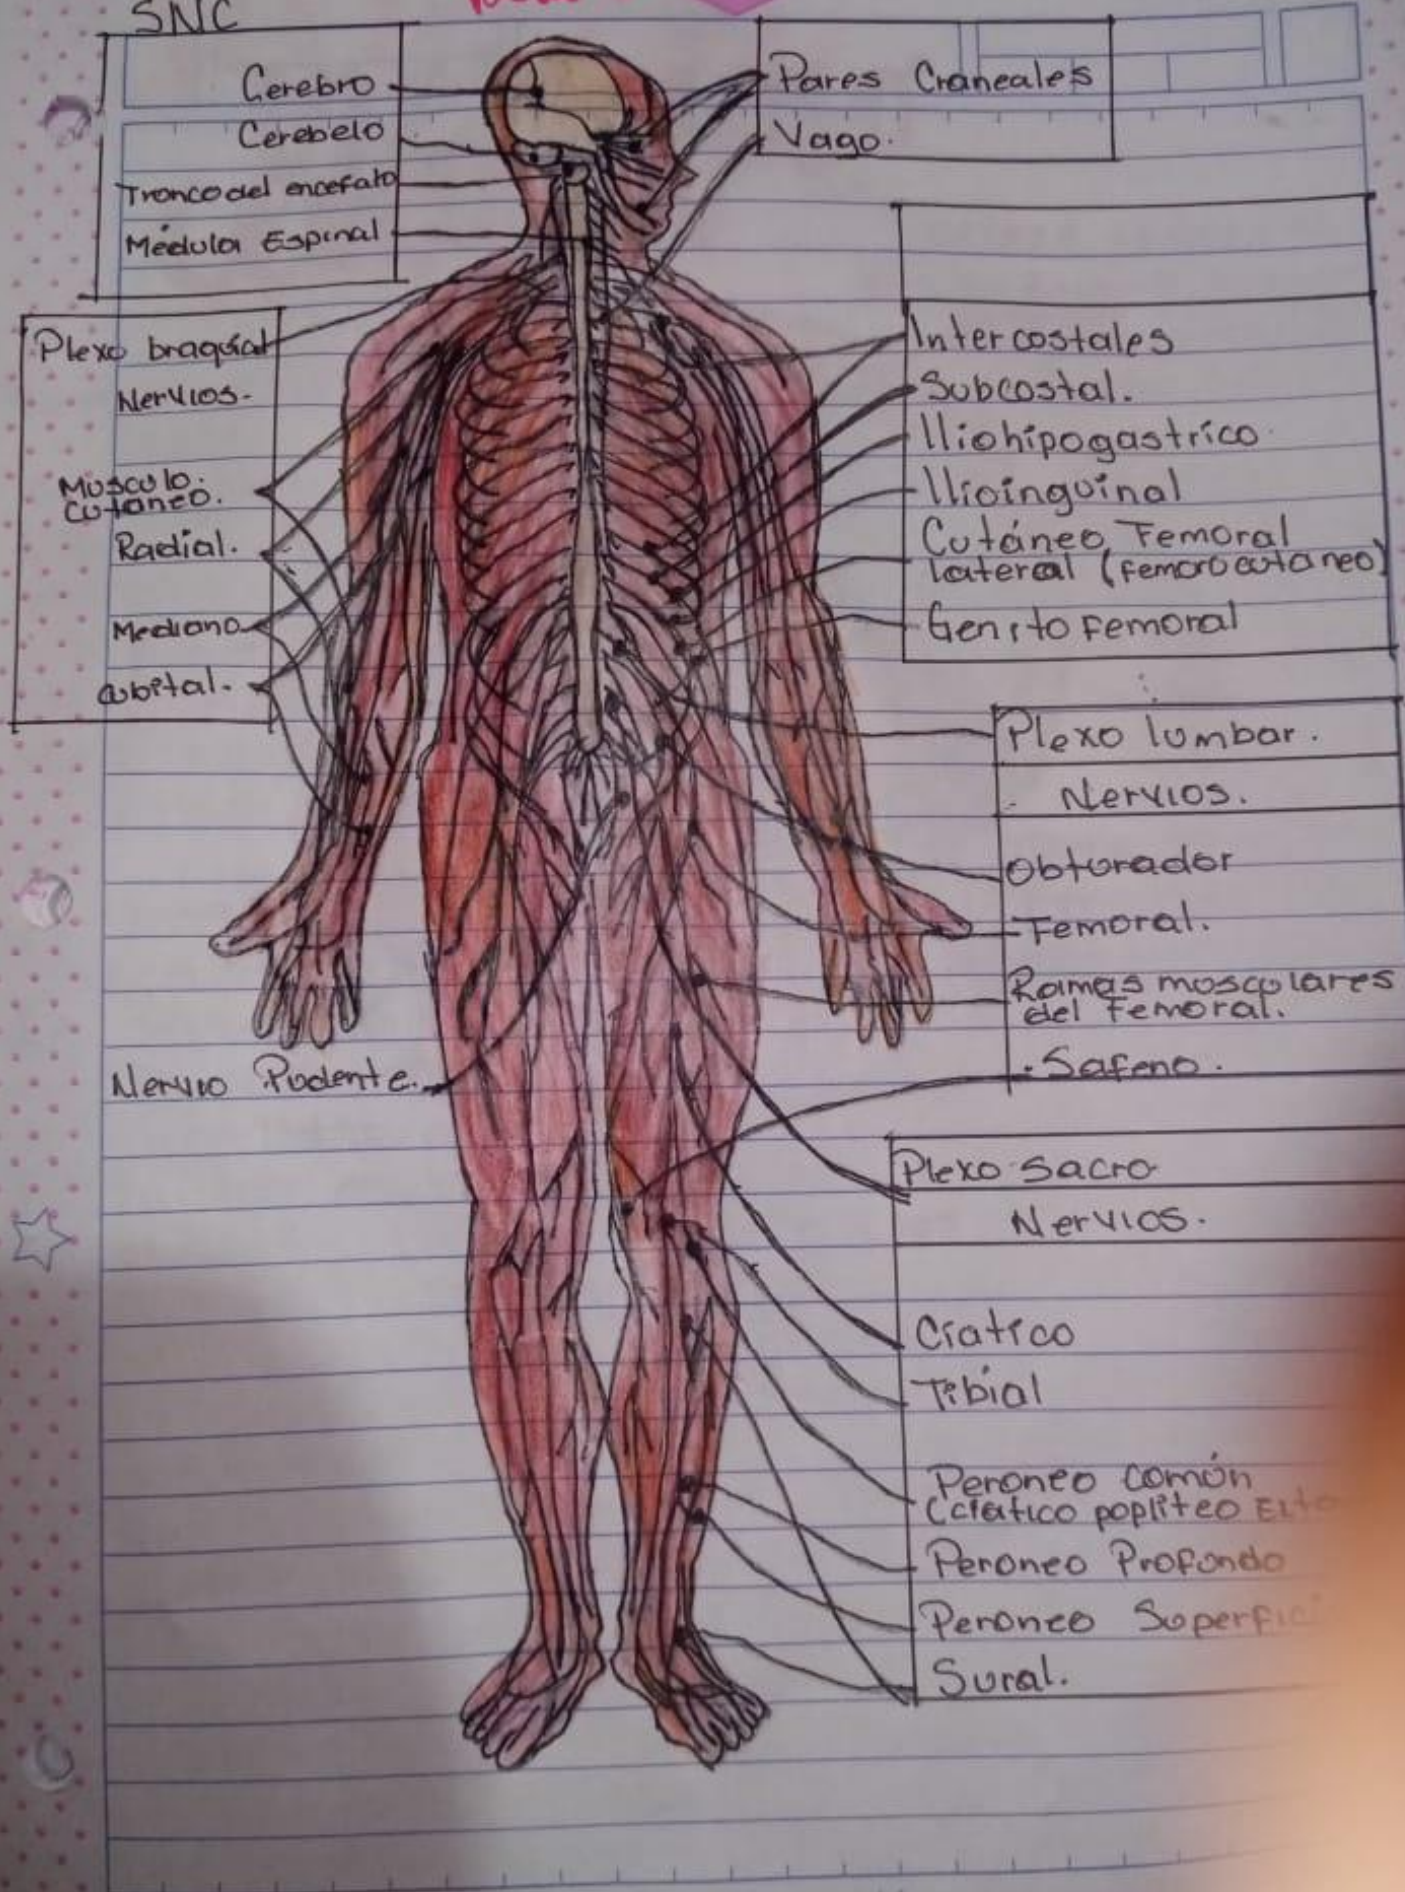 SNC
Cerebro
Cerebelo
Tronco del encefalo
Médula Espinal
Pares Craneales
Vago.
Plexo braquial
Nervios.
Musculo.
Cutaneo.
Radial.
Mediano
Cubital.
Intercostales
Subcostal.
Iliohipogastrico
Ilioinguinal
Cutáneo Femoral
lateral (femorocutaneo)
Genito femoral
Plexo lumbar.
Nervios.
Obturador
Femoral.
Ramas musculares
del Femoral.
Safeno.
Nervio Pudente.
Plexo sacro
Nervios.
Ciatico
Tibial
Peroneo común
(ciatico popliteo
Peroneo Profundo
Peroneo
Sural.